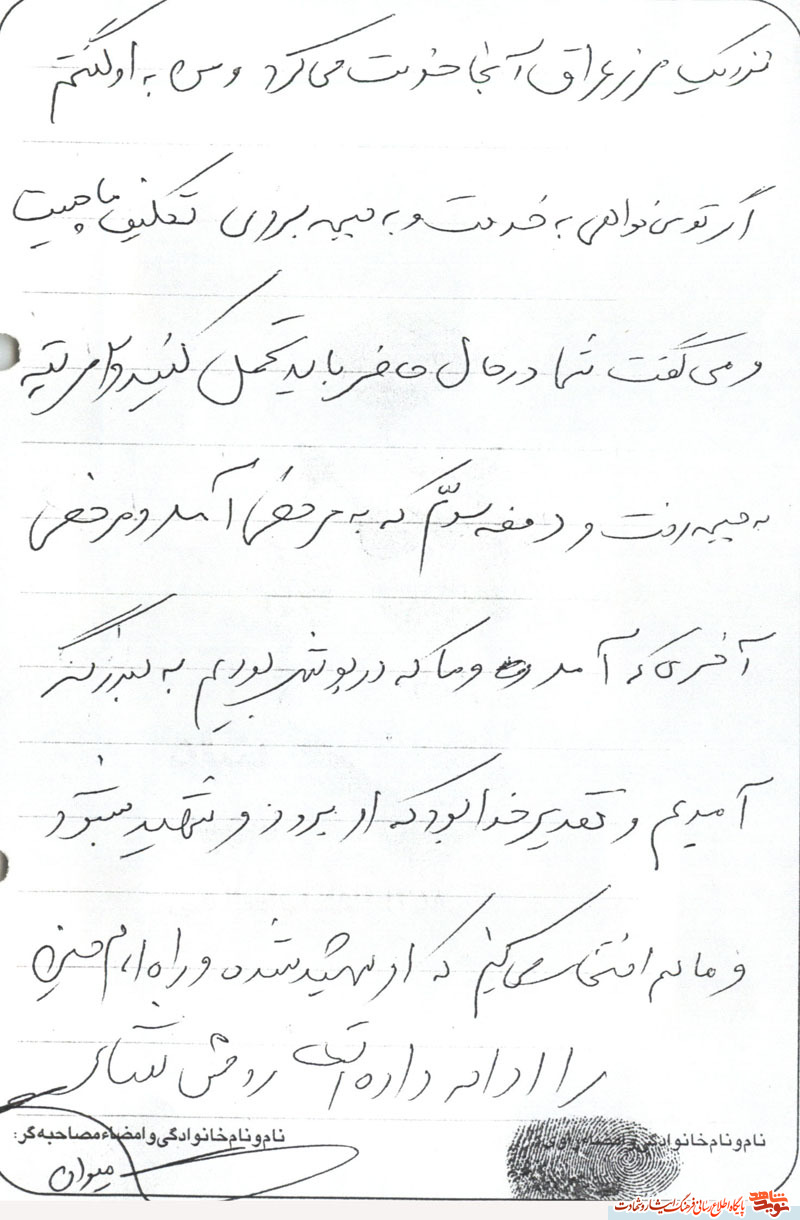 نزدیک مرز عراق آنجا خدمت می کرد و من به او گفتم
اگر تو می خواهی به خدمت و به جبهه بروی تکلیف ما چیست
و می گفت شما در حال حاضر باید تحمل کنید و مرتبه
به جبهه رفت و دفعه سوّم که به مرخصی آمد و مرخصی
آخری که آمد و ما که در پوشهر بودیم به
آمدیم و تقدیر خدا بود که او برود و شهید شود
و ما هم افتخار می کنیم که او شهید شده و راه امام حسین
را ادامه داده است روحش شاد
نام و نام خانوادگی و امضاء راوی:
نام و نام خانوادگی و امضاء مصاحبه گر:
نوید شاهد پایگاه اطلاع رسانی فرهنگ ایثار و شهادت